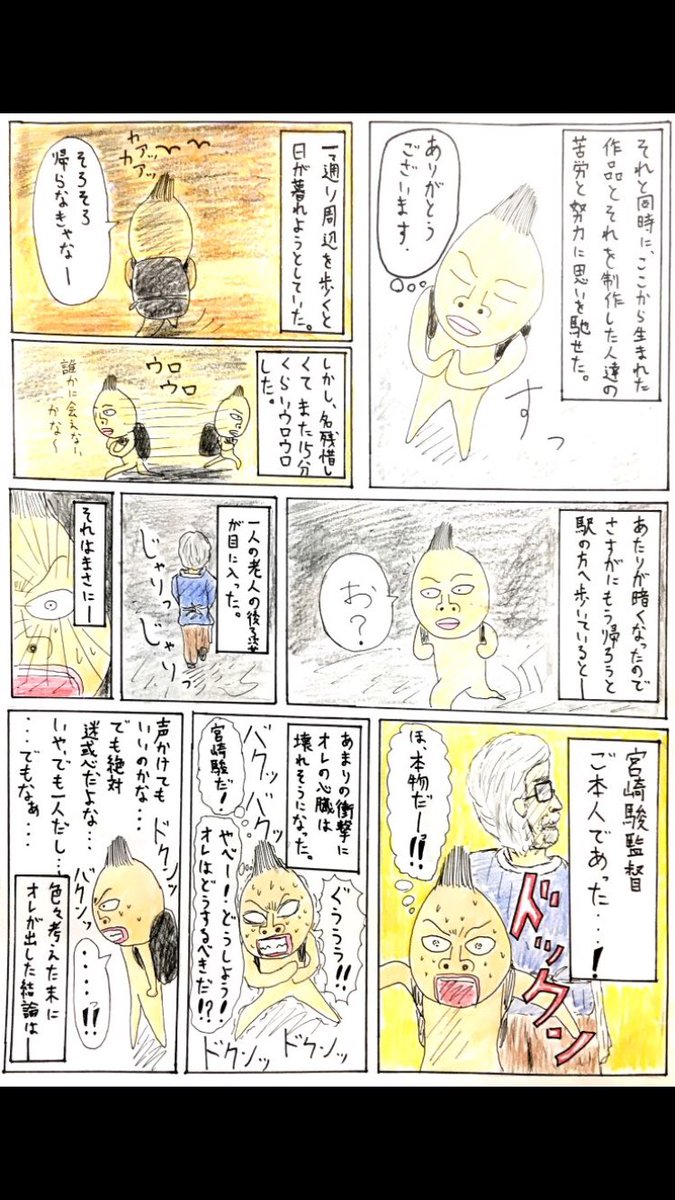 それと同時に、ここから生まれた
作品とそれを制作した人達の
苦労と努力に思いを馳せた。
ありがとう
ございます.
すっ
一通り周辺を歩くと
日が暮れようとしていた。
カアッ
カアッ
そろそろ
帰らなきゃなー
しかし、名残惜し
くてまた15分
くらいウロウロ
した。
ウロ
ウロ
誰かに会えない
かな〜
あたりが暗くなったので
さすがにもう帰ろうと
駅の方へ歩いているとー
お?
一人の老人の後ろ姿
が目に入った。
じゃりっ
じゃりっ
それはまさにー
宮崎駿監督
ご本人であった・・・!
ほ、本物だー!!
ドックン
あまりの衝撃に
オレの心臓は
壊れそうになった。
バクッ
バクッ
宮崎駿だ!
ぐううう!!
やべー!どうしよう!
オレはどうするべきだ!?
ドクンッ
ドクンッ
声かけても
いいのかな・・・
でも絶対
迷惑だよな・・・
いや、でも一人だし・・・
・・・でもなぁ・・・
ドクンッ
バクンッ
・・・・!!
色々考えた末に
オレが出した結論はー